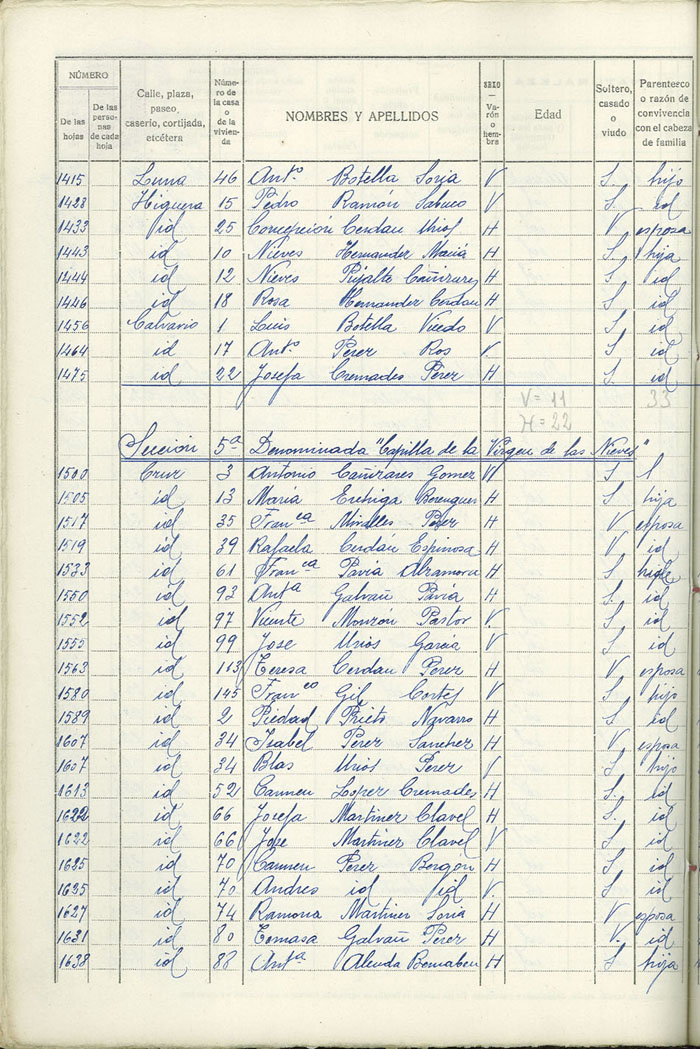 NÚMERO
De las hojas
De las personas de cada hoja
Calle, plaza, paseo, caserío, cortijada, etcétera
Número de la casa o de la vivienda
NOMBRES Y APELLIDOS
SEXO — Varón o hembra
Edad
Soltero, casado o viudo
Parentesco o razón de convivencia con el cabeza de familia
1415 Luna 46 Antº Botella Soria V S. hijo
1428 Higuera 15 Pedro Ramón Sabuco V S. id
1433 id 25 Concepción Cerdán Uriós H V esposa
1443 id 10 Nieves Hernandez Maciá H S. hija
1444 id 12 Nieves Pujalte Cañizares H S. id
1446 id 18 Rosa Hernandez Cerdán H S. id
1456 Calvario 1 Luis Botella V S. id
1464 id 17 Antº Perez Ros V. S. id
1475 id 22 Josefa Cremades Perez H S. id
V = 11 33
H = 22
Sección 5ª Denominada "Capilla de la Virgen de las Nieves"
1500 Cruz 3 Antonio Cañizares Gomez V S
1505 id 13 María Berenguer H S. hija
1517 id 35 Franca Miralles Perez H V esposa
1519 id 39 Rafaela Cerdán Espinosa H V id
1533 id 61 Franca Pavia H S.
1550 id 93 Antª Galvañ Pavía H S. id
1552 id 97 Vicente Monzon Pastor V. S. id
1555 id 99 Jose Uriós García V S. id
1563 id 113 Teresa Cerdán Perez H V esposa
1580 id 145 Franco Gil Cortes V S. hijo
1589 id 2 Piedad Prieto Navarro H S. id
1607 id 34 Isabel Perez Sanchez H V. esposa
1607 id 34 Blas Uriós Perez V S. hijo
1613 id 52 Carmen Lopez Cremades H S. id
1622 id 66 Josefa Martinez Clavel H S. id
1622 id 66 Jose Martinez Clavel V S. id
1625 id 70 Carmen Perez H S. id
1625 id 70 Andres id id V S. id
1627 id 74 Ramona Martinez Soria H V esposa
1631 id 80 Tomasa Galvañ Perez H V. id
1638 id 88 Antª Alenda Bernabeu H S. hija